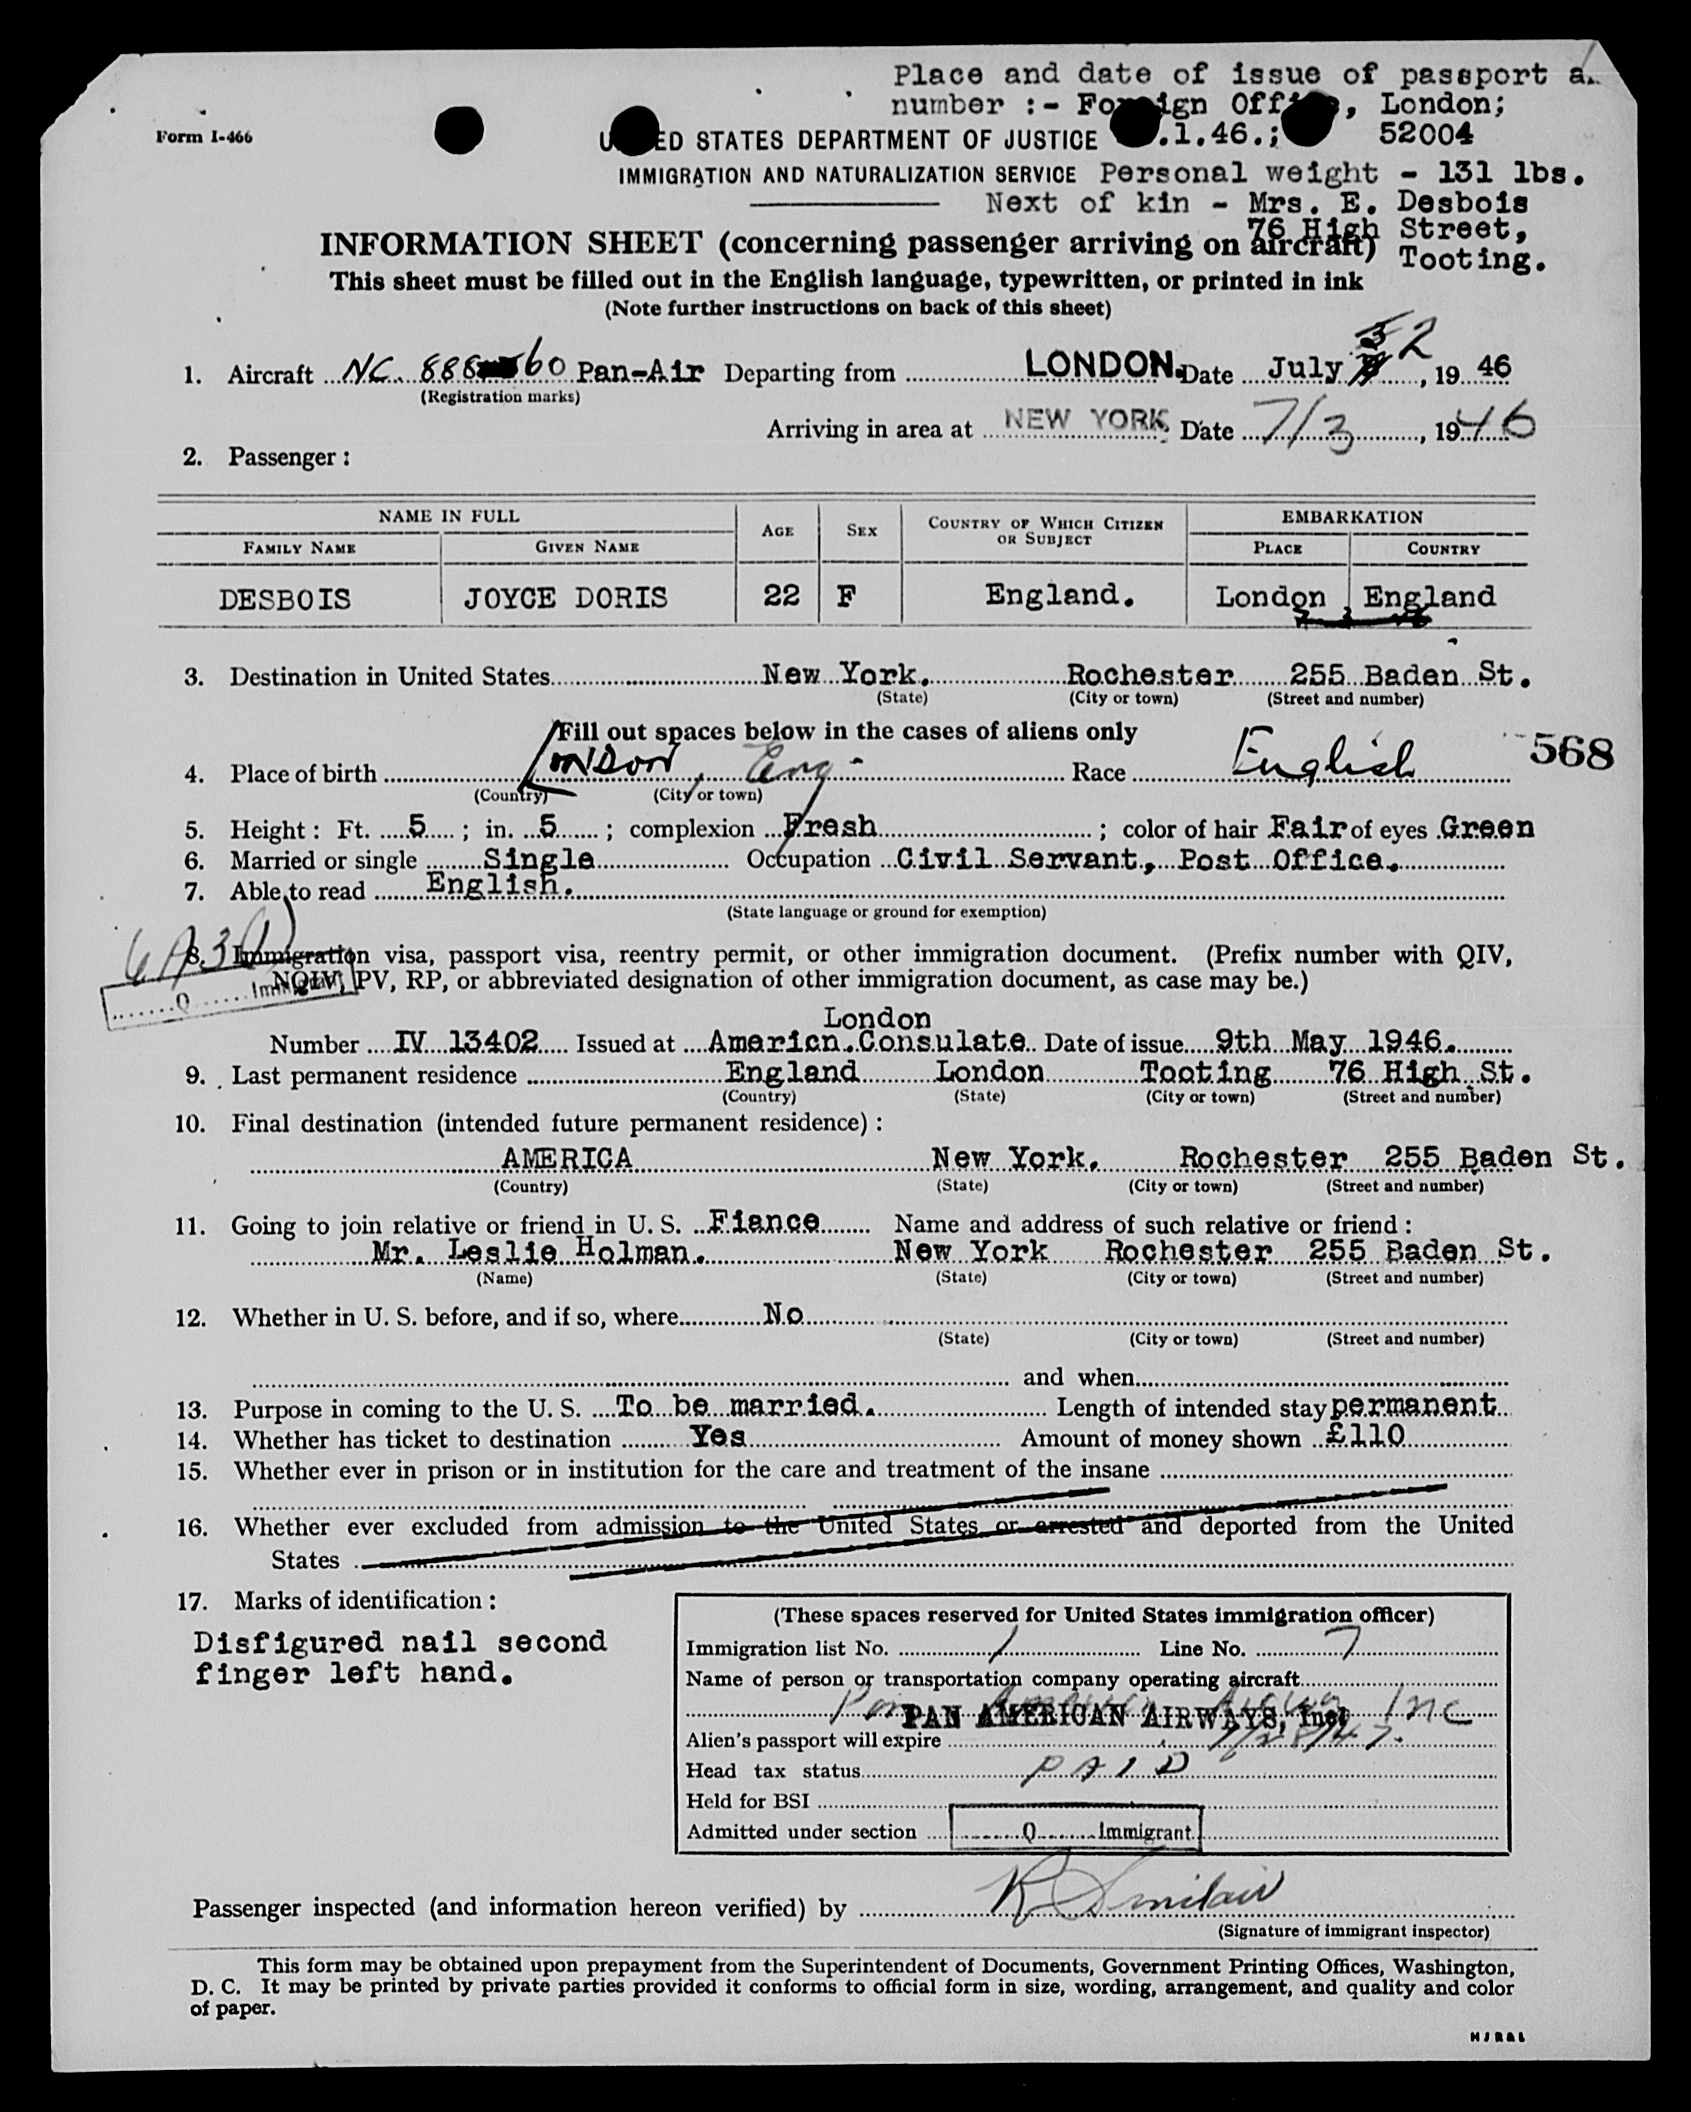 Place and date of issue of passport
number :- Foreign Office, London;
Form I-466
UNITED STATES DEPARTMENT OF JUSTICE .1.46.; 52004
IMMIGRATION AND NATURALIZATION SERVICE Personal weight - 131 lbs.
Next of kin - Mrs. E. Desbois
76 High Street,
Tooting.
INFORMATION SHEET (concerning passenger arriving on aircraft)
This sheet must be filled out in the English language, typewritten, or printed in ink
(Note further instructions on back of this sheet)
1. Aircraft NC. 888 60 Pan-Air Departing from LONDON. Date July 2, 19 46
(Registration marks)
Arriving in area at NEW YORK Date 7/3, 1946
2. Passenger :
NAME IN FULL AGE SEX COUNTRY OF WHICH CITIZEN OR SUBJECT EMBARKATION
FAMILY NAME GIVEN NAME PLACE COUNTRY
DESBOIS JOYCE DORIS 22 F England. London England
3. Destination in United States New York. Rochester 255 Baden St.
(State) (City or town) (Street and number)
Fill out spaces below in the cases of aliens only
568
4. Place of birth London, Eng - Race English
(Country) (City or town)
5. Height : Ft. 5 ; in. 5 ; complexion Fresh ; color of hair Fair of eyes Green
6. Married or single Single Occupation Civil Servant, Post Office.
7. Able to read English.
(State language or ground for exemption)
8. Immigration visa, passport visa, reentry permit, or other immigration document. (Prefix number with QIV,
NQIV, PV, RP, or abbreviated designation of other immigration document, as case may be.)
Q Immigrant
London
Number IV 13402 Issued at Americn.Consulate Date of issue 9th May 1946.
9. Last permanent residence England London Tooting 76 High St.
(Country) (State) (City or town) (Street and number)
10. Final destination (intended future permanent residence) :
AMERICA New York, Rochester 255 Baden St.
(Country) (State) (City or town) (Street and number)
11. Going to join relative or friend in U. S. Fiance Name and address of such relative or friend :
Mr. Leslie Holman. New York Rochester 255 Baden St.
(Name) (State) (City or town) (Street and number)
12. Whether in U. S. before, and if so, where No
(State) (City or town) (Street and number)
and when
13. Purpose in coming to the U. S. To be married. Length of intended stay permanent
14. Whether has ticket to destination Yes Amount of money shown £110
15. Whether ever in prison or in institution for the care and treatment of the insane
16. Whether ever excluded from admission to the United States or arrested and deported from the United
States
17. Marks of identification :
Disfigured nail second
finger left hand.
(These spaces reserved for United States immigration officer)
Immigration list No. 1 Line No. 7
Name of person or transportation company operating aircraft
PAN AMERICAN AIRWAYS, Inc.
Alien's passport will expire
Head tax status PAID
Held for BSI
Admitted under section Q Immigrant
Passenger inspected (and information hereon verified) by R Sinclair
(Signature of immigrant inspector)
This form may be obtained upon prepayment from the Superintendent of Documents, Government Printing Offices, Washington,
D. C. It may be printed by private parties provided it conforms to official form in size, wording, arrangement, and quality and color
of paper.